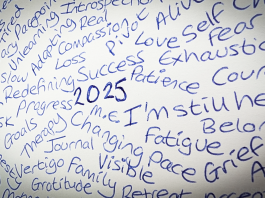 Introspect
Alive
Unlearning Real Compassion Pivot Love Self
Adapting Loss Fear
slow Success Exhaustio
Redefining Patience Cour
Progress 2025
Goals M.E I'm still he
Therapy Changing Fatigue Belon
Journal Pace Grief
Vertigo Family Visible
Gratitude Retreat